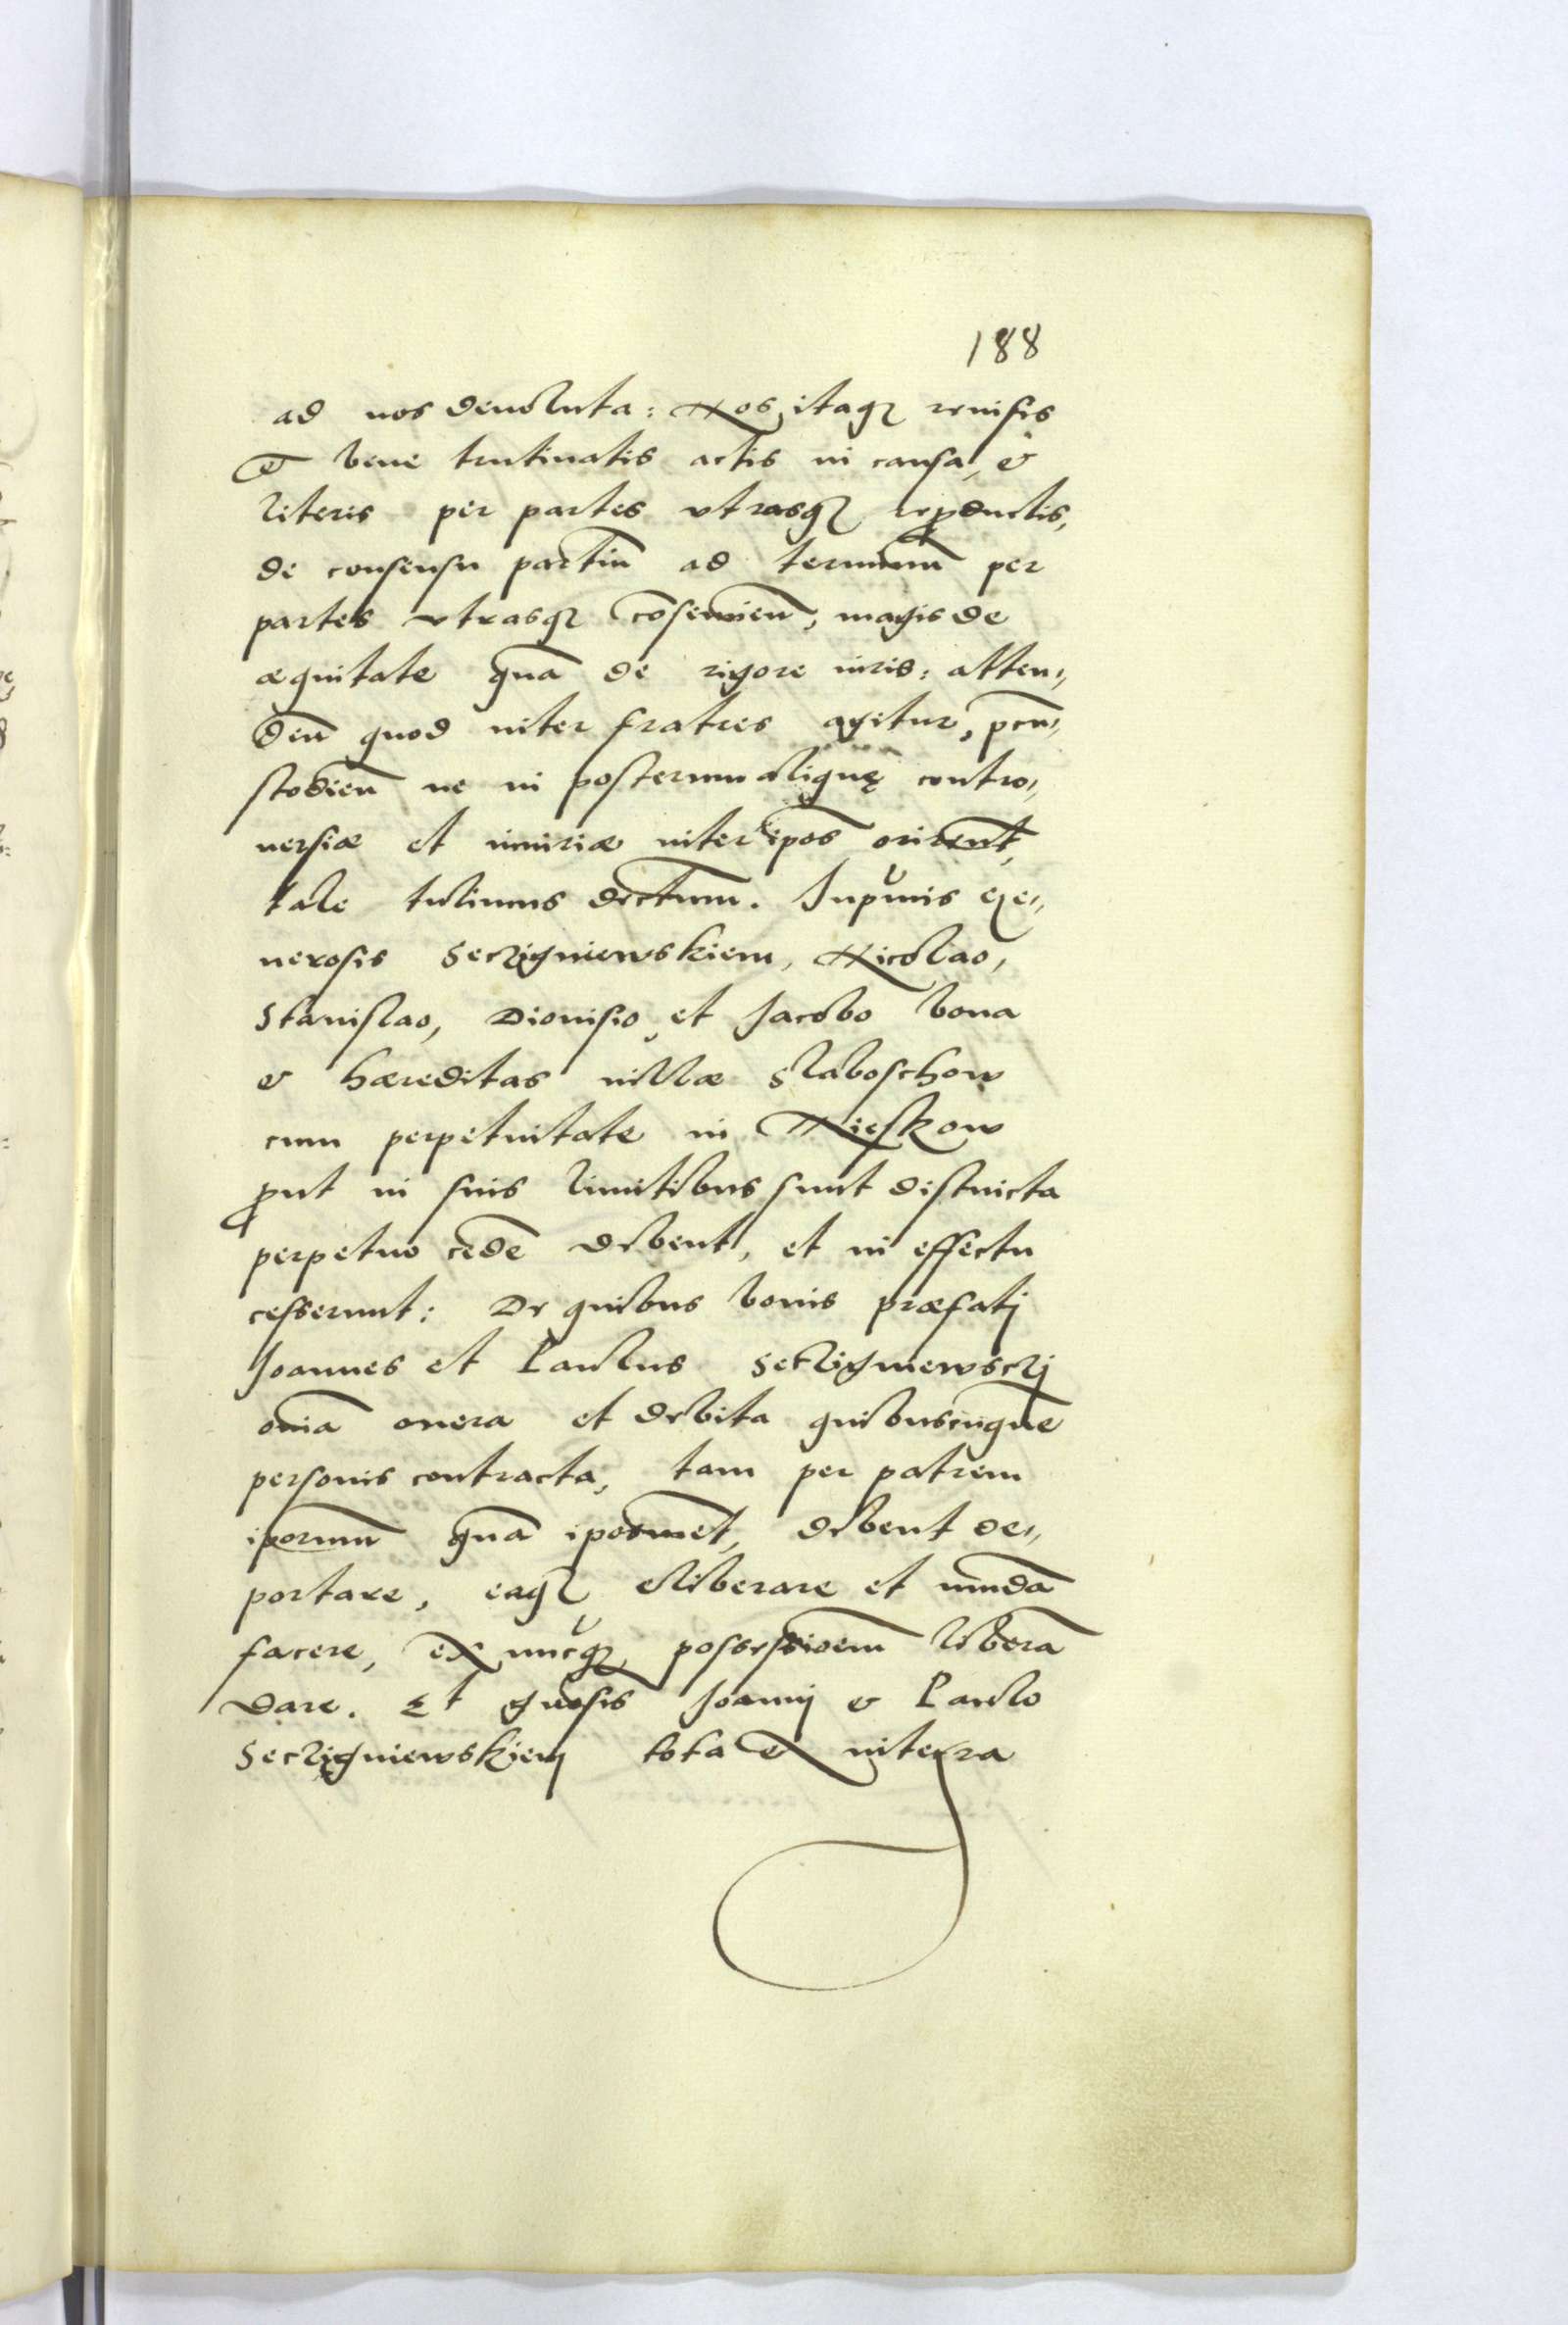 188
ad nos deuoluta: Nos itaqꝫ reuisis
et bene trutinatis actis in causa, &
literis per partes vtrasqꝫ reꝓductis,
de consensu partiū ad terminū per
partes vtrasqꝫ cōseruien̄, magis de
æquitate quā de rigore iuris: atten„
den̄ quod inter fratres agitur, p̄cu„
stodien̄ ne in posterum aliquę contro„
uersiæ et iniuriæ inter ip̄os orirent̄,
tale tulimus decr̄tum. Inprimis ge„
nerosis Seczigniewskiem, Nicolao,
Stanislao, Dionisio, et Jacobo bona
& hæreditas villæ Slaboschow
cum perpetuitate in Mieskow
ꝓut in suis limitibus sunt distincta
perpetuo cedē debent, et in effectu
cesserunt: De quibus bonis præfatj
Joannes et Paulus Seczigniewsczij
om̄ia onera et debita quibuscūque
personis contracta, tam per patrem
ip̄orum quā ip̄osmet, debent de„
portare, eaqꝫ eliberare et mundā
facere, ex nūcqꝫ possessioēm liberā
dare. Et gnosis Joannj & Paulo
Seczigniewskiem tota et integra